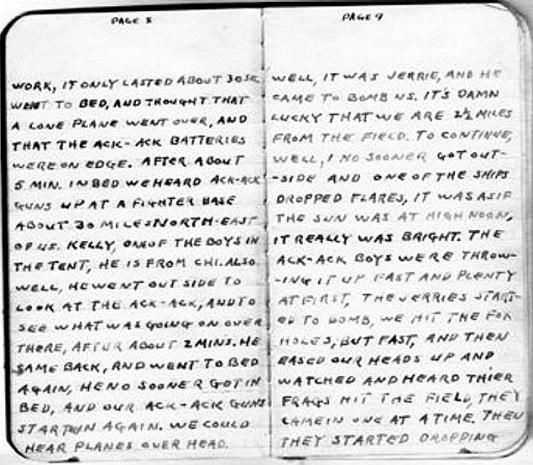 PAGE 8
WORK, IT ONLY LASTED ABOUT 30 SEC.
WENT TO BED, AND THOUGHT THAT
A LONE PLANE WENT OVER, AND
THAT THE ACK-ACK BATTERIES
WERE ON EDGE. AFTER ABOUT
5 MIN. IN BED WE HEARD ACK-ACK
GUNS UP AT A FIGHTER BASE
ABOUT 30 MILES NORTH-EAST
OF US. KELLY, ONE OF THE BOYS IN
THE TENT, HE IS FROM CHI. ALSO.
WELL, HE WENT OUT SIDE TO
LOOK AT THE ACK-ACK, AND TO
SEE WHAT WAS GOING ON OVER
THERE, AFTER ABOUT 2 MINS. HE
SAME BACK, AND WENT TO BED
AGAIN, HE NO SOONER GOT IN
BED, AND OUR ACK-ACK GUNS
START UN AGAIN. WE COULD
HEAR PLANES OVER HEAD.
PAGE 9
WELL, IT WAS JERRIE, AND HE
CAME TO BOMB US. IT'S DAMN
LUCKY THAT WE ARE 2½ MILES
FROM THE FIELD. TO CONTINUE,
WELL, I NO SOONER GOT OUT-
-SIDE AND ONE OF THE SHIPS
DROPPED FLARES, IT WAS AS IF
THE SUN WAS AT HIGH NOON,
IT REALLY WAS BRIGHT. THE
ACK-ACK BOYS WERE THROW-
-ING IT UP FAST AND PLENTY
AT FIRST, THE JERRIES START-
ED TO BOMB, WE HIT THE FOX
HOLES, BUT FAST, AND THEN
EASED OUR HEADS UP AND
WATCHED AND HEARD THIER
FRAGS HIT THE FIELD, THEY
CAME IN ONE AT A TIME. THEN
THEY STARTED DROPPING